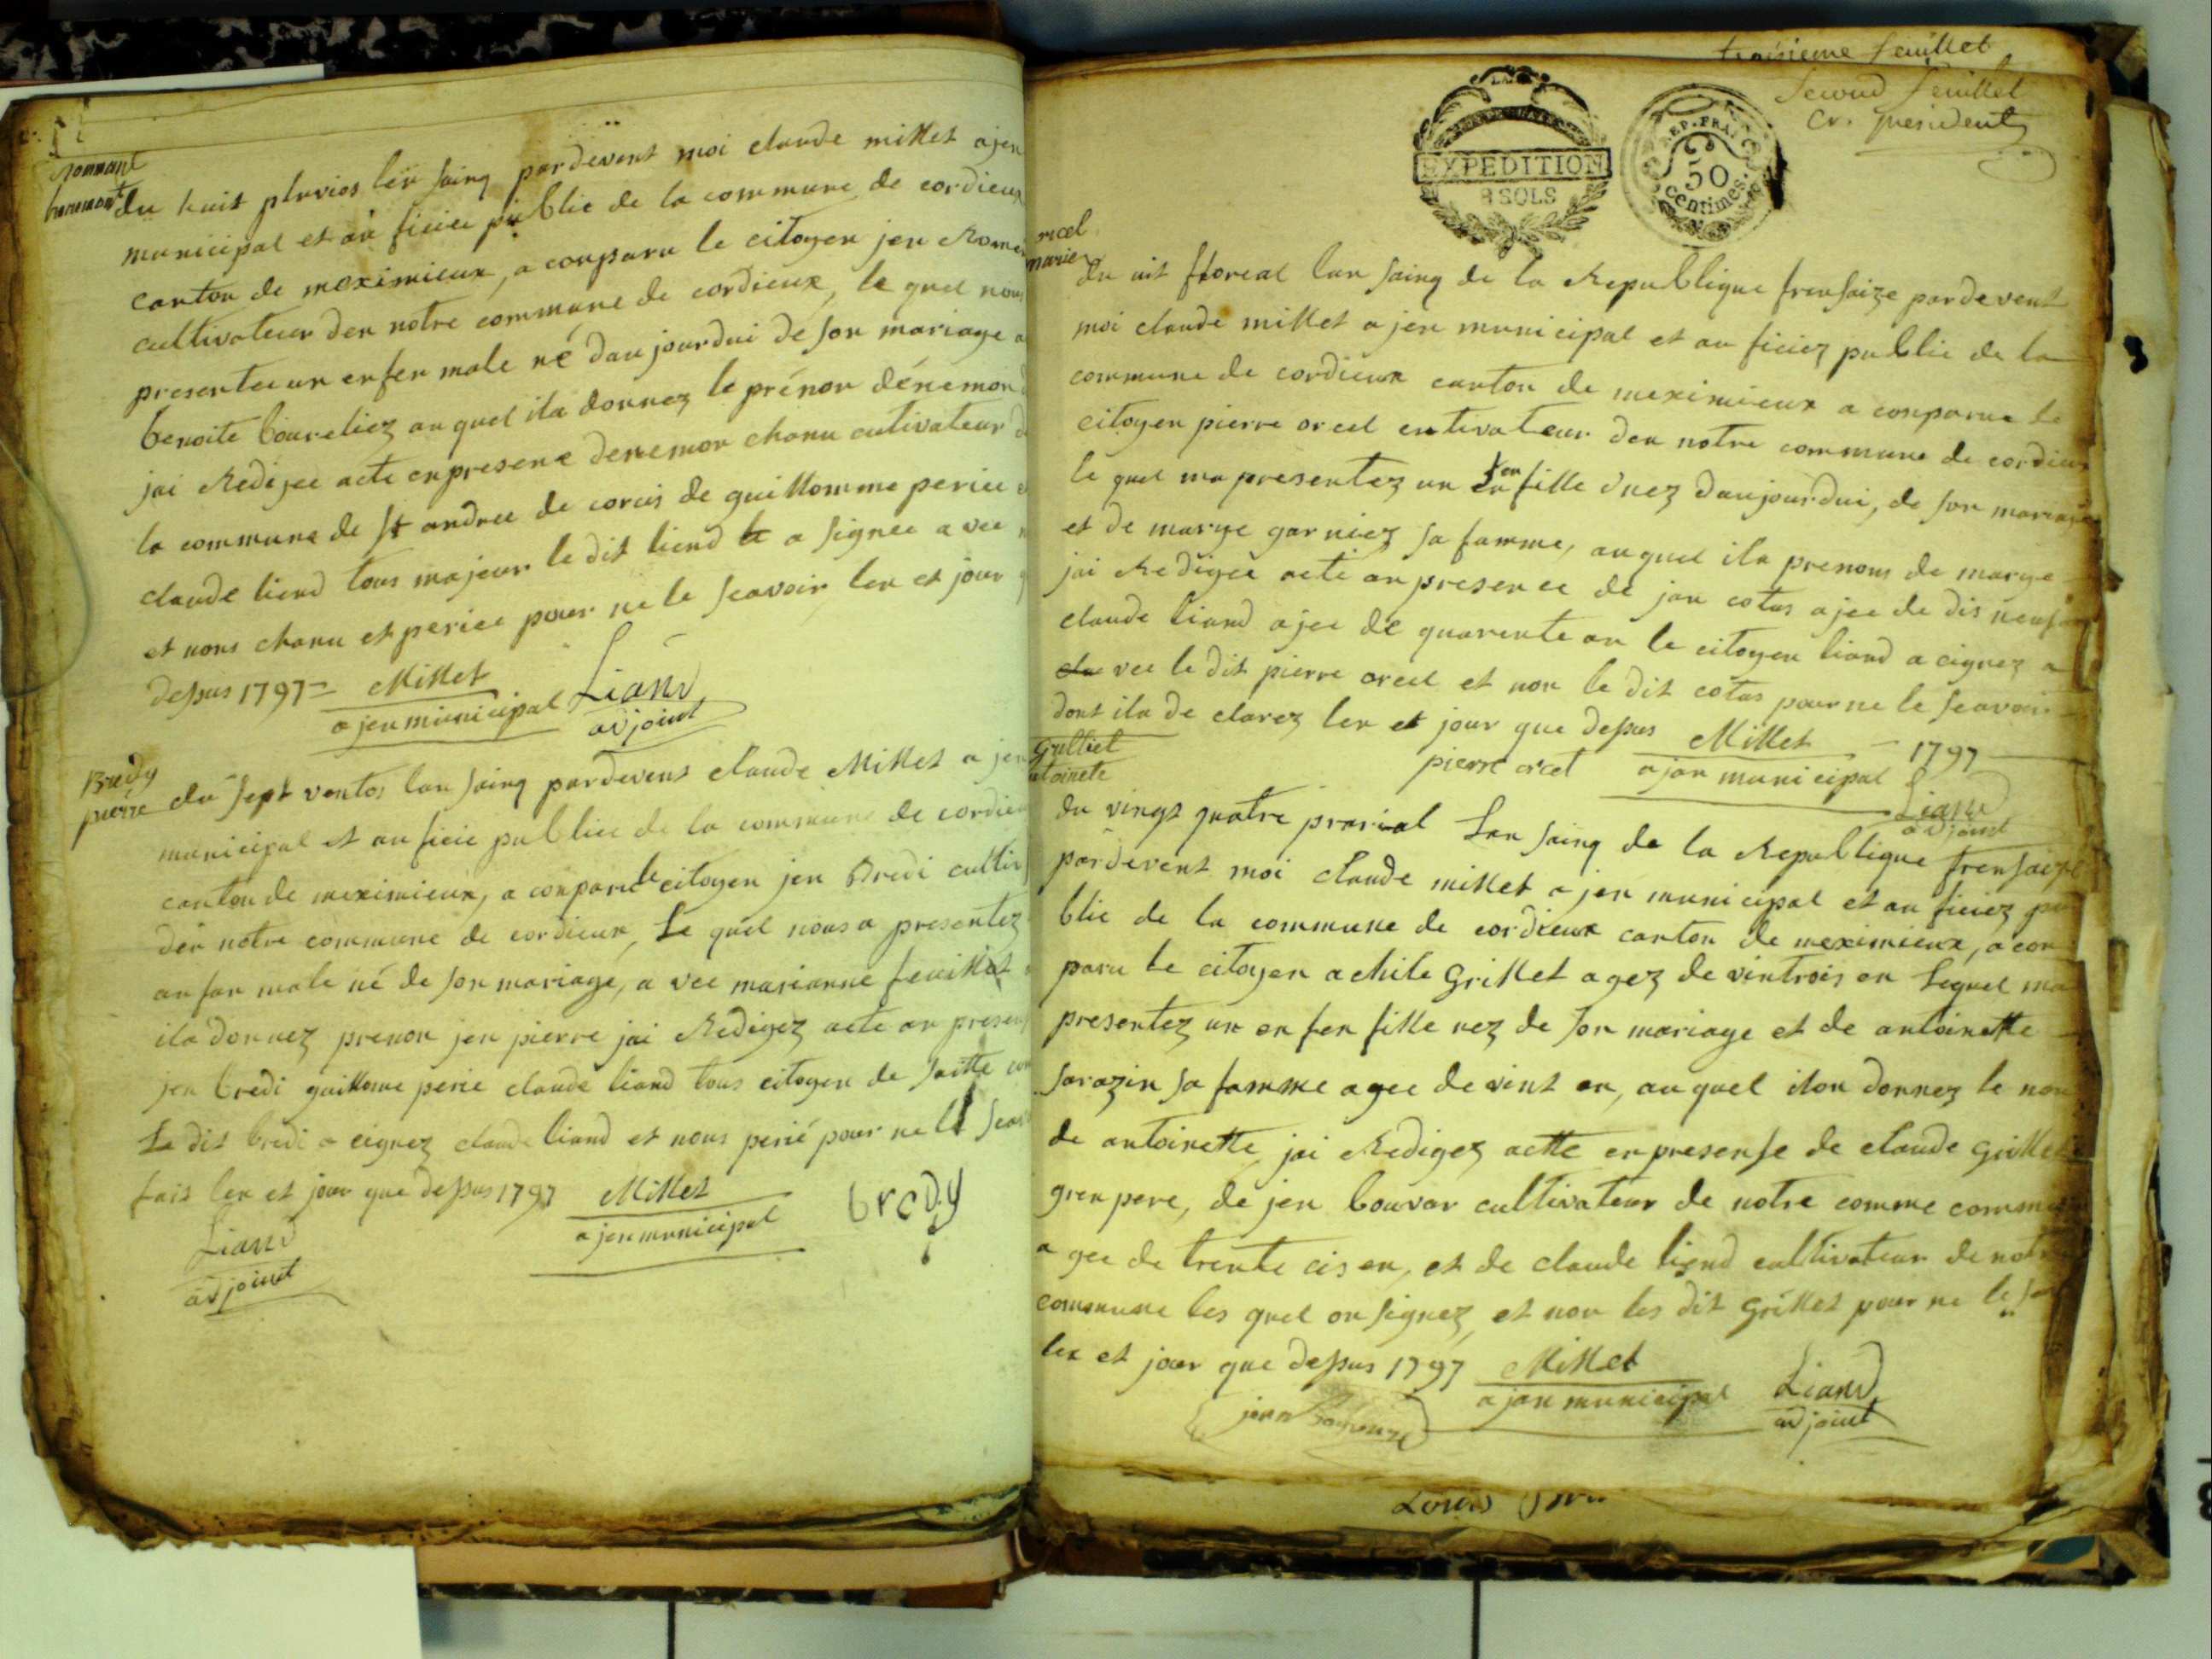 du huit pluvios len saing pardevent moi claude millet ajen
municipal et au ficiee publie de la commune de cordieux
canton de meximieux, a conparu le citoyen jen
cultivateur den notre commune de cordieux, le quel nous
presentee un enfen male né daujourdui de son mariage a
benoite boureliez au quel ila donnez le prénon dénemon
jai Redijee acte en presene denemon chanu cutivateur d
la commune de st andree de corcis de guillomme periee e
claude liend tous majeur le dit liend a signee a vec
et nons chanu et periee pour ne le scavoir len et jour
dessus 1797 = Millet
ajen municipal
Liand
adjoint
Bredy
pierre
du sept ventos lan saing pardevent claude Millet a jen
municipal et au ficie publiee de la commune de cordieu
canton de meximieux, a conparu le citoyen jen Bredi cultiv
den notre commune de cordieux, Le quel nous a presentez
anfan male né de son mariage, a vee marianne feuillet
ila donnez prenon jen pierre jai Redigez acte an presen
jen bredi guillome perie claude liand tous citoyen de saitte com
Le dit bredi a cignez claude liand et nons perié pour ne le scav
fait len et jour que dessus 1797
Millet
ajen municipal
bredy
Liand
adjoint
troisieme feuillet
Second feuillet
president
EXPEDITION
8 SOLS
REP. FRA.
50
centimes.
orcel
marie
du uit floreal lan saing de la Republique frensaize pardevent
moi claude millet ajen municipal et au ficiez publie de la
commune de cordieux canton de meximieux a conparue le
citoyen pierre orcel cutivateur den notre commune de cordieux
le quel ma presentez un en fen fille nez daujourdui, de son mariage
et de marye garniez sa famme, auquel ila prenons de marye
jai Redigee acte an presence de jan cotas ajee de dis neuf an
claude liand ajee de quarente an le citoyen liand a cignez a
vee le dit pierre orcel et non le dit cotas pour ne le scavoir
dont ila de clarez len et jour que dessus
pierre orcel
Millet
ajan municipal
1797
Liand
adjoint
Grilliet
antoinete
du vingt quatre prarial Lan saing de la Republique frensaize
pardevent moi claude millet ajen municipal et au ficiez pu
blie de la commune de cordieux canton de meximieux, a con
paru le citoyen achile Grillet agez de vintrois an Lequel ma
presentez un en fen fille nez de son mariage et de antoinette
sarazin sa famme agee de vint an, au quel ilon donnez le non
de antoinette jai Redigez actte en presense de claude Grillet
gren pere, de jen bouvar cultivateur de notre comme commune
a gee de trente cis en, et de claude liend cultivateur de notre
commune les quel on signez, et non les dit Grillet pour ne le
len et jour que dessus 1797
Millet
ajan municipal
Liand
adjoint
Louis